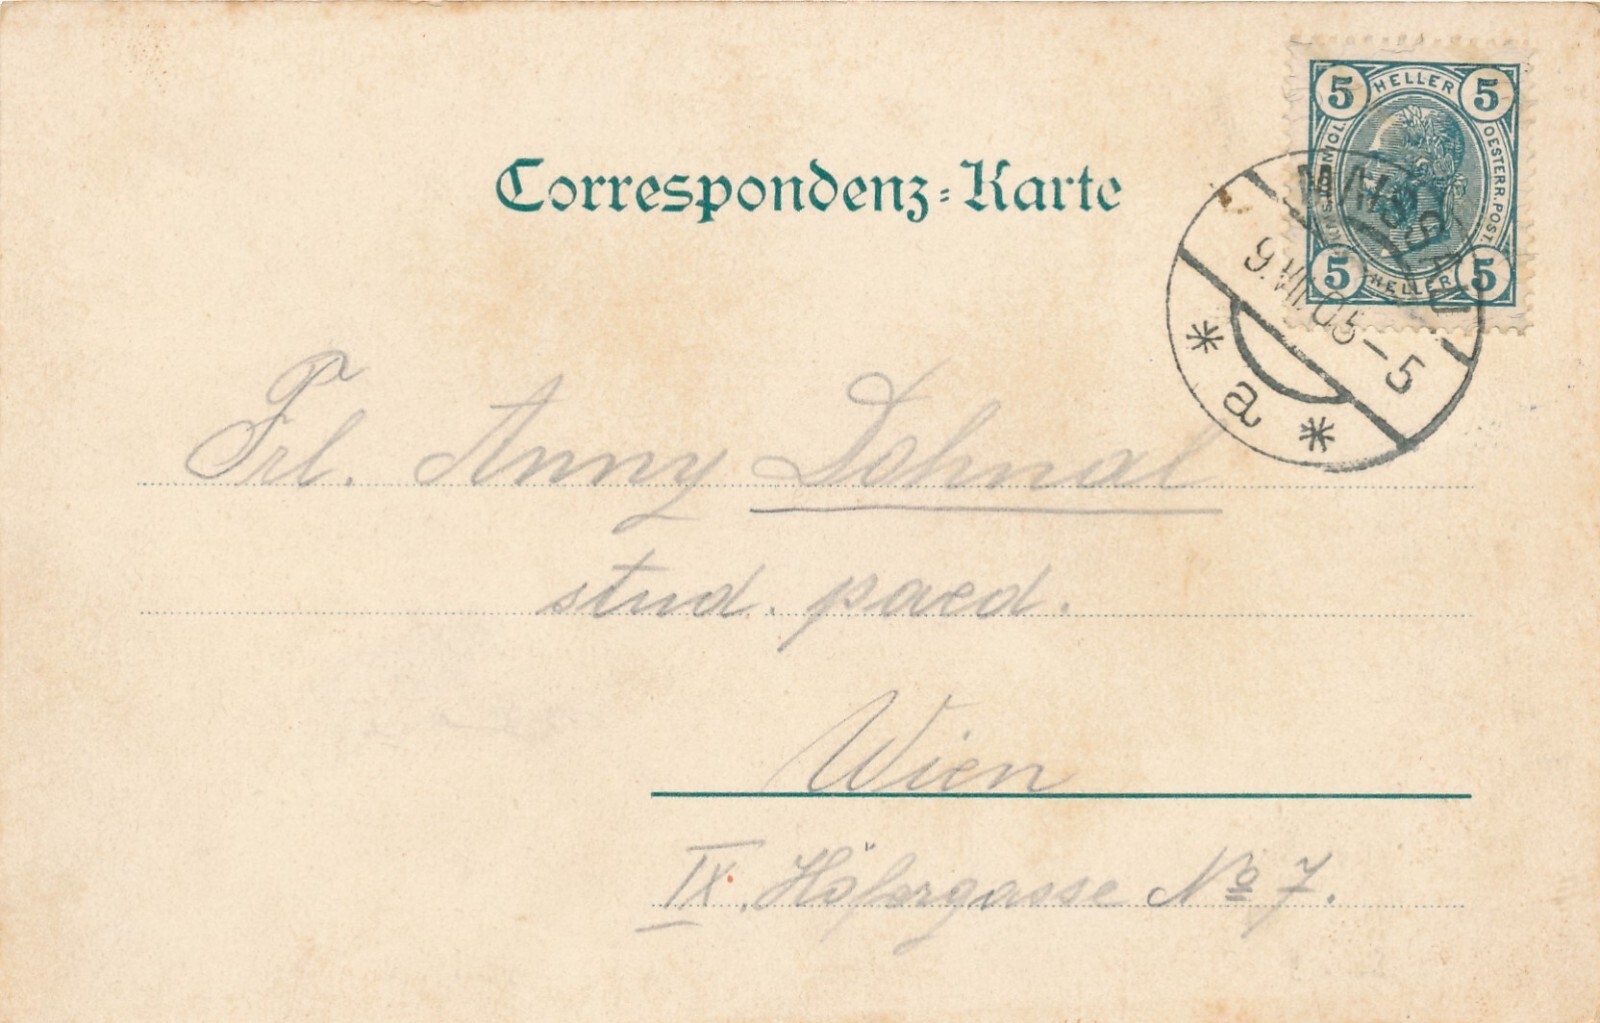 5 HELLER 5
KAIS. KÖNIGL.
OESTERR. POST.
5 HELLER 5
Correspondenz-Karte
* a *
Frl. Anny Dohnal
stud. paed.
Wien
IX. Höfergasse No 7.